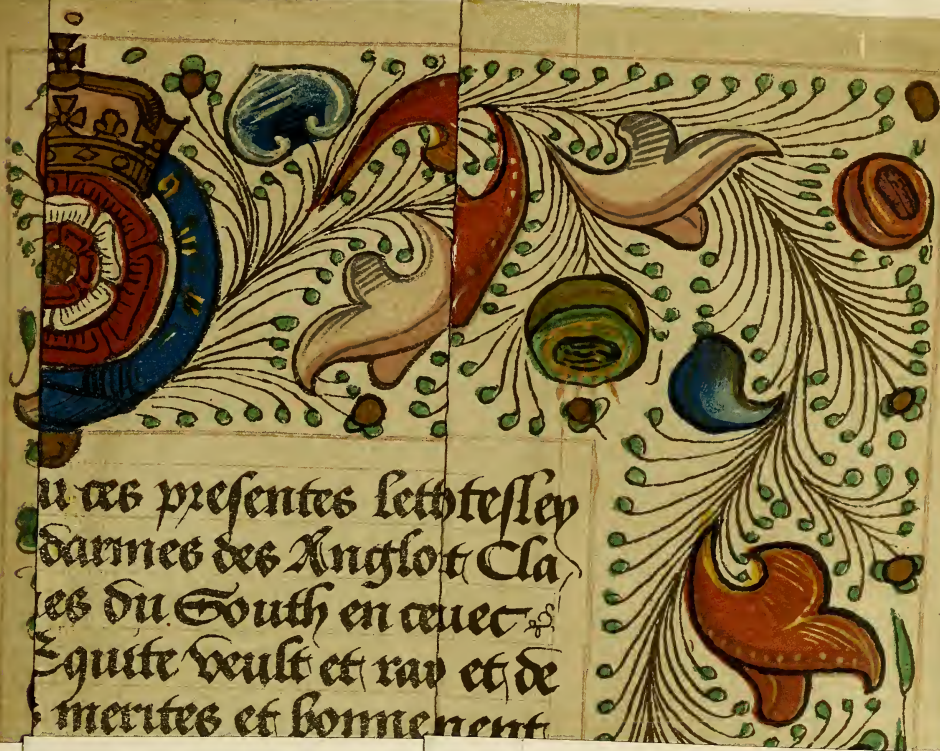 u ces presentes lettteslly
darmes des Anglot Cla
es du South en ceuec
Equite veult et rao et de
merites et bonnenent